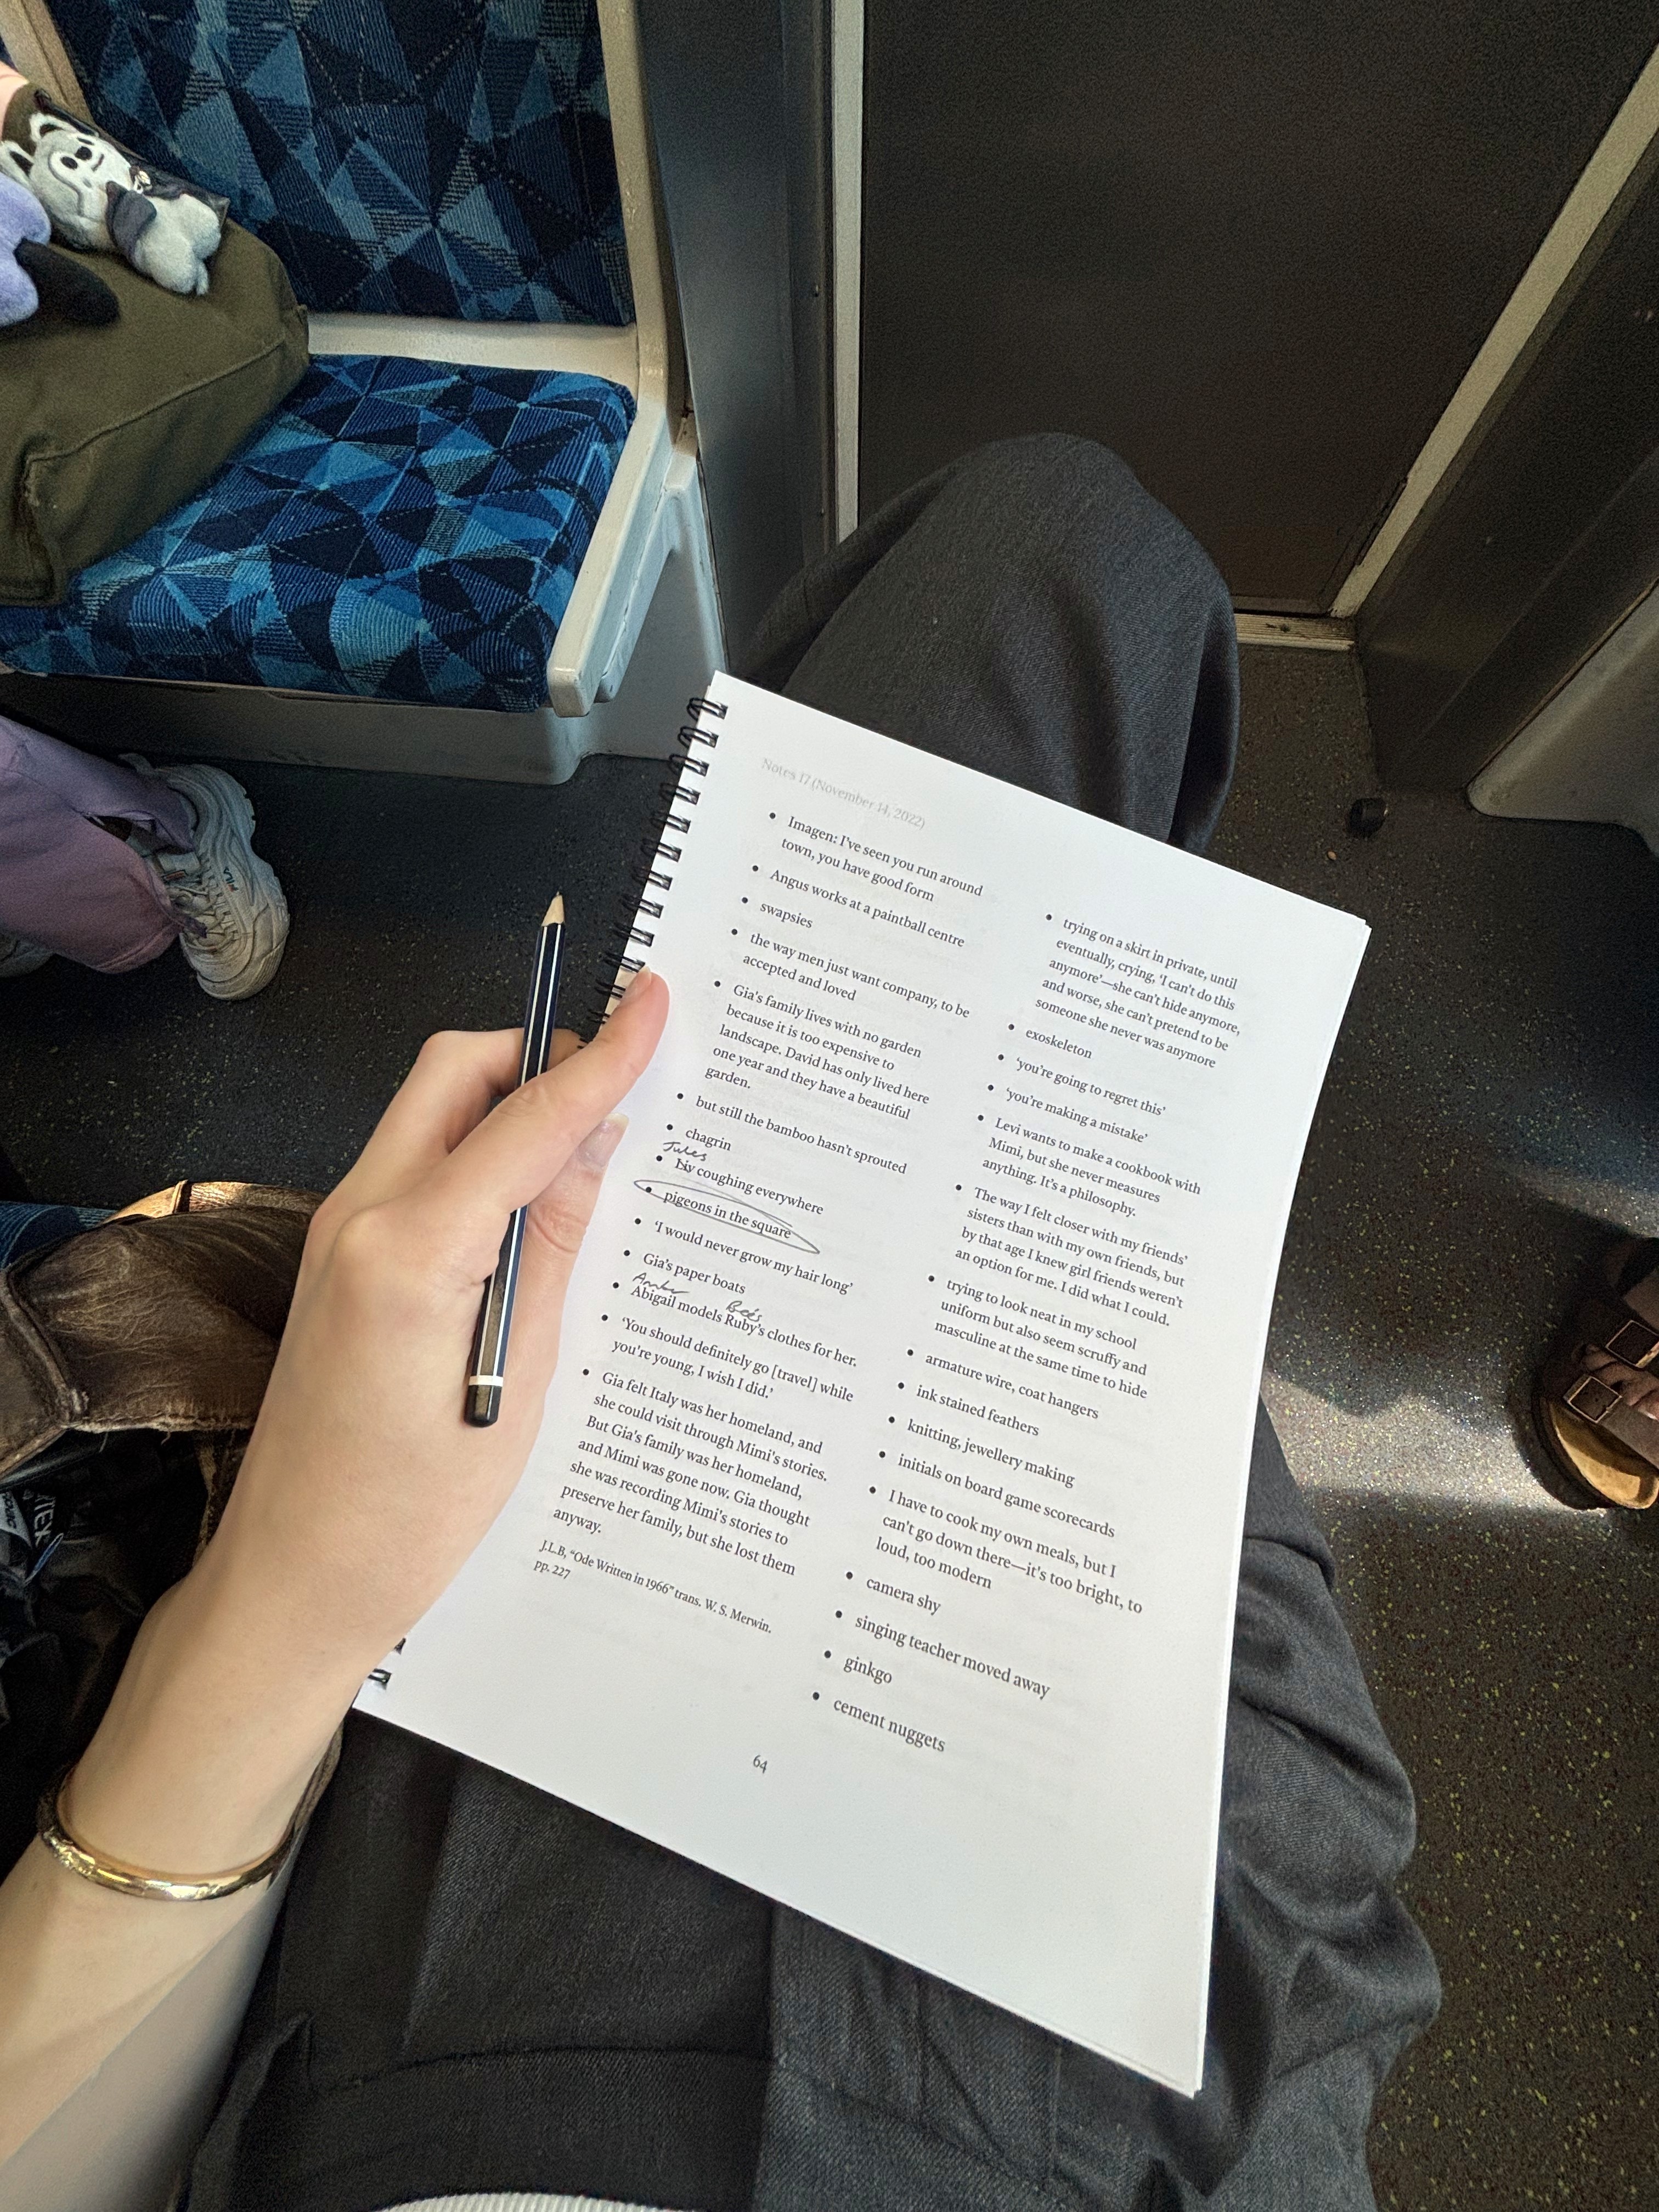 Notes 17 (November 14, 2022)
• Imagen: I've seen you run around
town, you have good form
• Angus works at a paintball centre
• swapsies
• the way men just want company, to be
accepted and loved
• Gia's family lives with no garden
because it is too expensive to
landscape. David has only lived here
one year and they have a beautiful
garden.
• but still the bamboo hasn't sprouted
• chagrin
Jules
• Liv coughing everywhere
• pigeons in the square
• 'I would never grow my hair long'
• Gia's paper boats
Amber Bee's
• Abigail models Ruby's clothes for her.
• 'You should definitely go [travel] while
you're young, I wish I did.'
• Gia felt Italy was her homeland, and
she could visit through Mimi's stories.
But Gia's family was her homeland,
and Mimi was gone now. Gia thought
she was recording Mimi's stories to
preserve her family, but she lost them
anyway.
J.L.B, “Ode Written in 1966” trans. W. S. Merwin.
pp. 227
• trying on a skirt in private, until
eventually, crying, 'I can't do this
anymore'—she can't hide anymore,
and worse, she can't pretend to be
someone she never was anymore
• exoskeleton
• 'you're going to regret this'
• 'you're making a mistake'
• Levi wants to make a cookbook with
Mimi, but she never measures
anything. It's a philosophy.
• The way I felt closer with my friends'
sisters than with my own friends, but
by that age I knew girl friends weren't
an option for me. I did what I could.
• trying to look neat in my school
uniform but also seem scruffy and
masculine at the same time to hide
• armature wire, coat hangers
• ink stained feathers
• knitting, jewellery making
• initials on board game scorecards
• I have to cook my own meals, but I
can't go down there—it's too bright, to
loud, too modern
• camera shy
• singing teacher moved away
• ginkgo
• cement nuggets
64
FILA